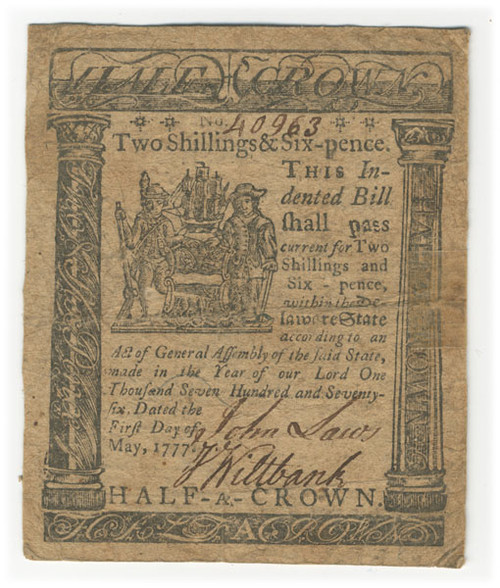 HALF CROWN
No. 40963
Two Shillings & Six-pence.
THIS In-
dented Bill
shall pass
current for Two
Shillings and
Six-pence,
within the De-
laware State
according to an
Act of General Assembly of the said State,
made in the Year of our Lord One
Thousand Seven Hundred and Seventy-
six. Dated the
First Day of
May, 1777.
John Laws
J Wiltbank
HALF-A-CROWN.
A
HALF
CROWN